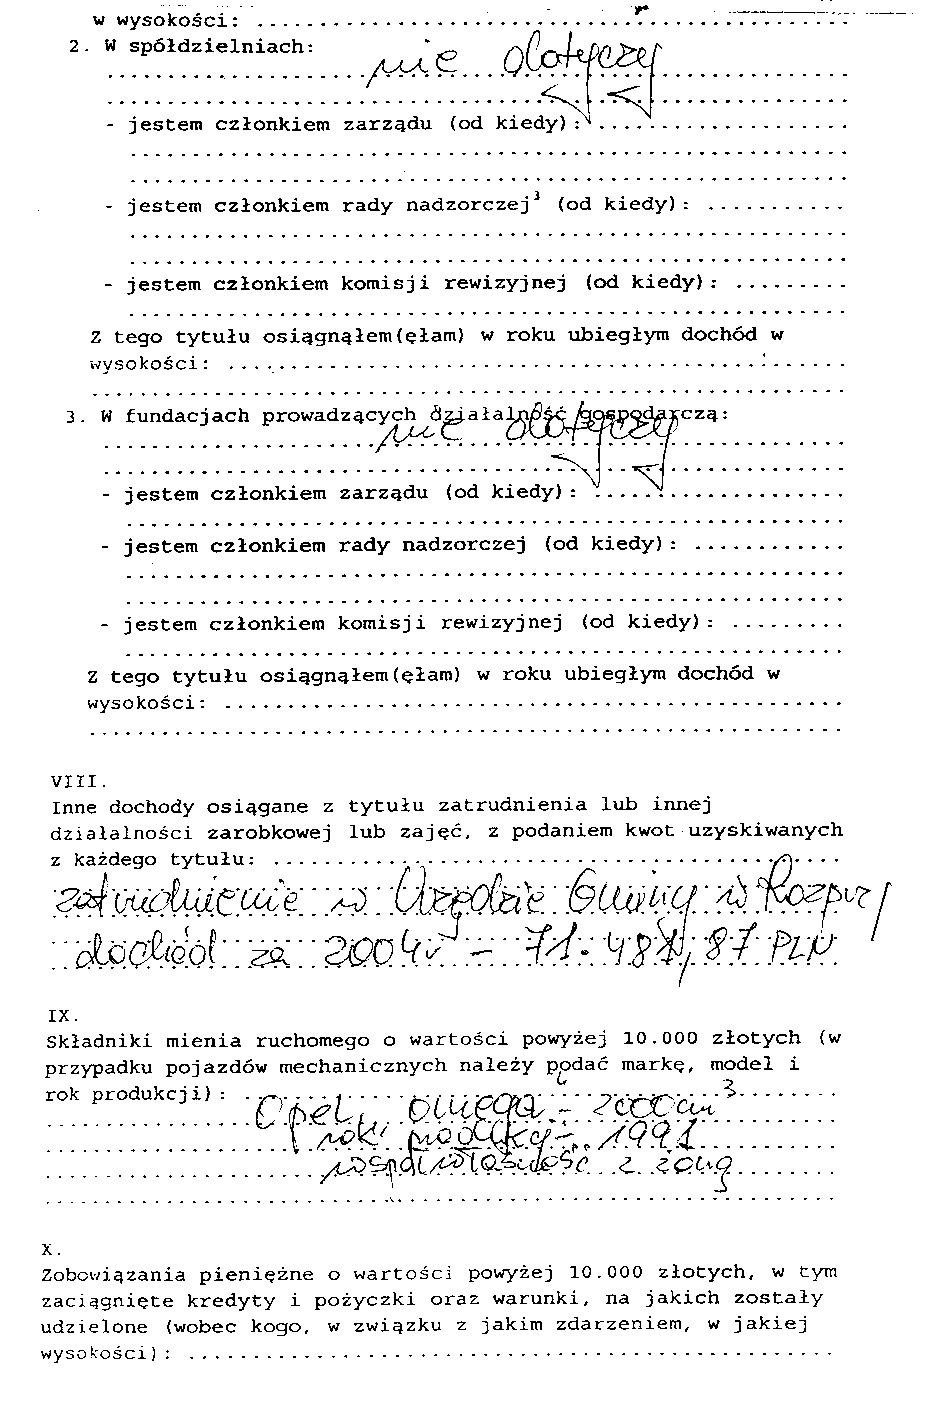 w wysokości: ..........
2. W spółdzielniach:
nie dotyczy
- jestem członkiem zarządu (od kiedy): ..........
- jestem członkiem rady nadzorczej³ (od kiedy): ..........
- jestem członkiem komisji rewizyjnej (od kiedy): .........
Z tego tytułu osiągnąłem(ęłam) w roku ubiegłym dochód w
wysokości: ..........
3. W fundacjach prowadzących działalność gospodarczą:
nie dotyczy
- jestem członkiem zarządu (od kiedy): ..........
- jestem członkiem rady nadzorczej (od kiedy): ..........
- jestem członkiem komisji rewizyjnej (od kiedy): .........
Z tego tytułu osiągnąłem(ęłam) w roku ubiegłym dochód w
wysokości: ..........
VIII.
Inne dochody osiągane z tytułu zatrudnienia lub innej
działalności zarobkowej lub zajęć, z podaniem kwot uzyskiwanych
z każdego tytułu: ..........
zatrudnienie w Urzędzie Gminy w Rozprzy
dochód za 2004r - 71.481,87 PLN
IX.
Składniki mienia ruchomego o wartości powyżej 10.000 złotych (w
przypadku pojazdów mechanicznych należy podać markę, model i
rok produkcji): ..........
Opel omega - 2000cm³
rok produkcji - 1991
współwłasność z żoną
X.
Zobowiązania pieniężne o wartości powyżej 10.000 złotych, w tym
zaciągnięte kredyty i pożyczki oraz warunki, na jakich zostały
udzielone (wobec kogo, w związku z jakim zdarzeniem, w jakiej
wysokości): ..........